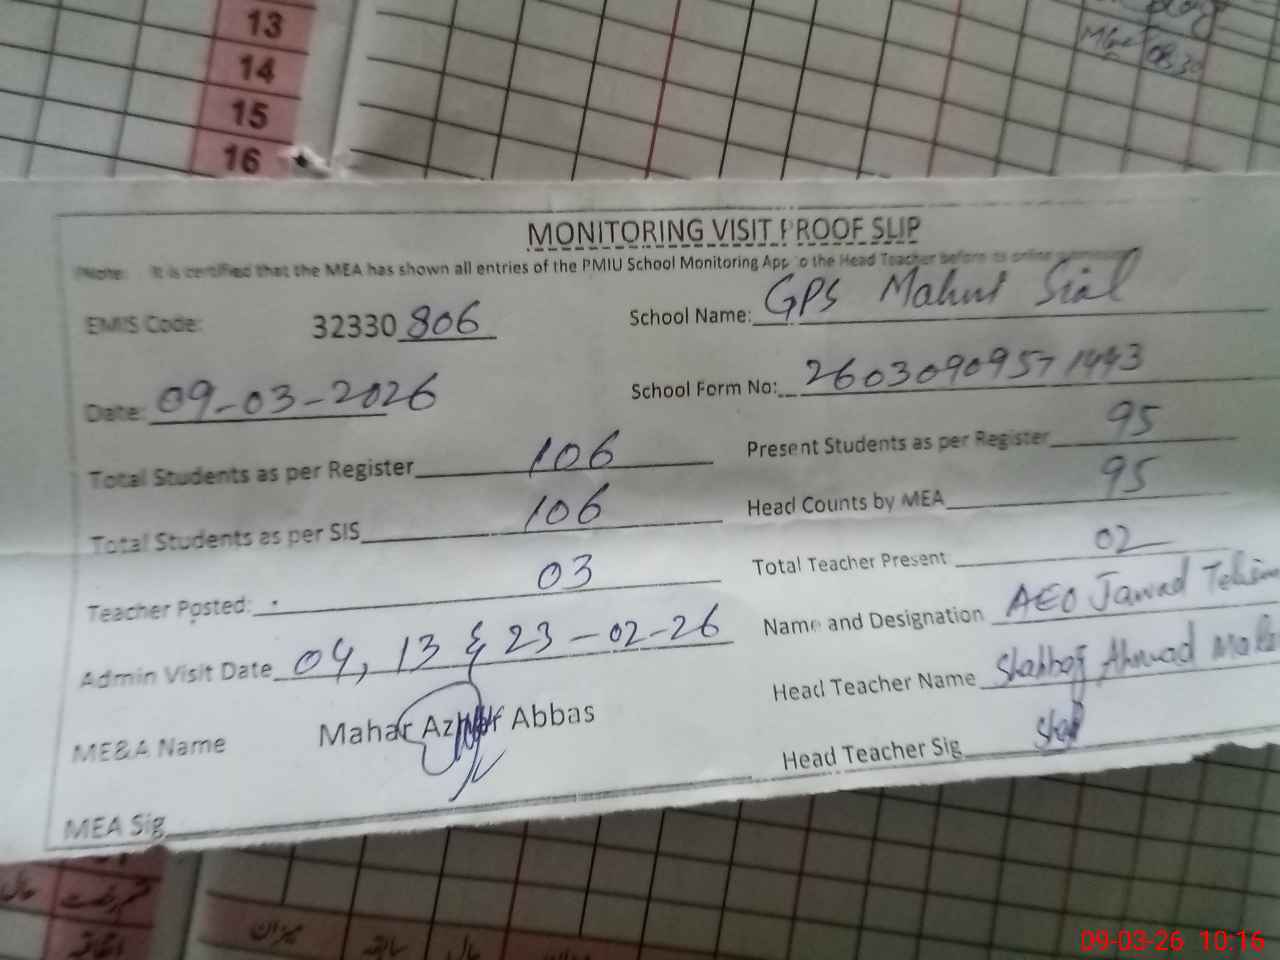 13
14
15
16
08:30
MONITORING VISIT PROOF SLIP
Note: It is certified that the MEA has shown all entries of the PMIU School Monitoring App to the Head Teacher before its online
EMIS Code: 32330 806
School Name: GPS Mahni Sial
Date: 09-03-2026
School Form No: 2603090957 1443
Total Students as per Register 106
Present Students as per Register 95
Total Students as per SIS 106
Head Counts by MEA 95
Teacher Posted: 03
Total Teacher Present 02
Admin Visit Date 04, 13 & 23-02-26
Name and Designation AEO Jawad
ME&A Name Mahar Azhar Abbas
Head Teacher Name Ahmad
Head Teacher Sig
MEA Sig
میزان
سابقہ
حال
09-03-26 10:16